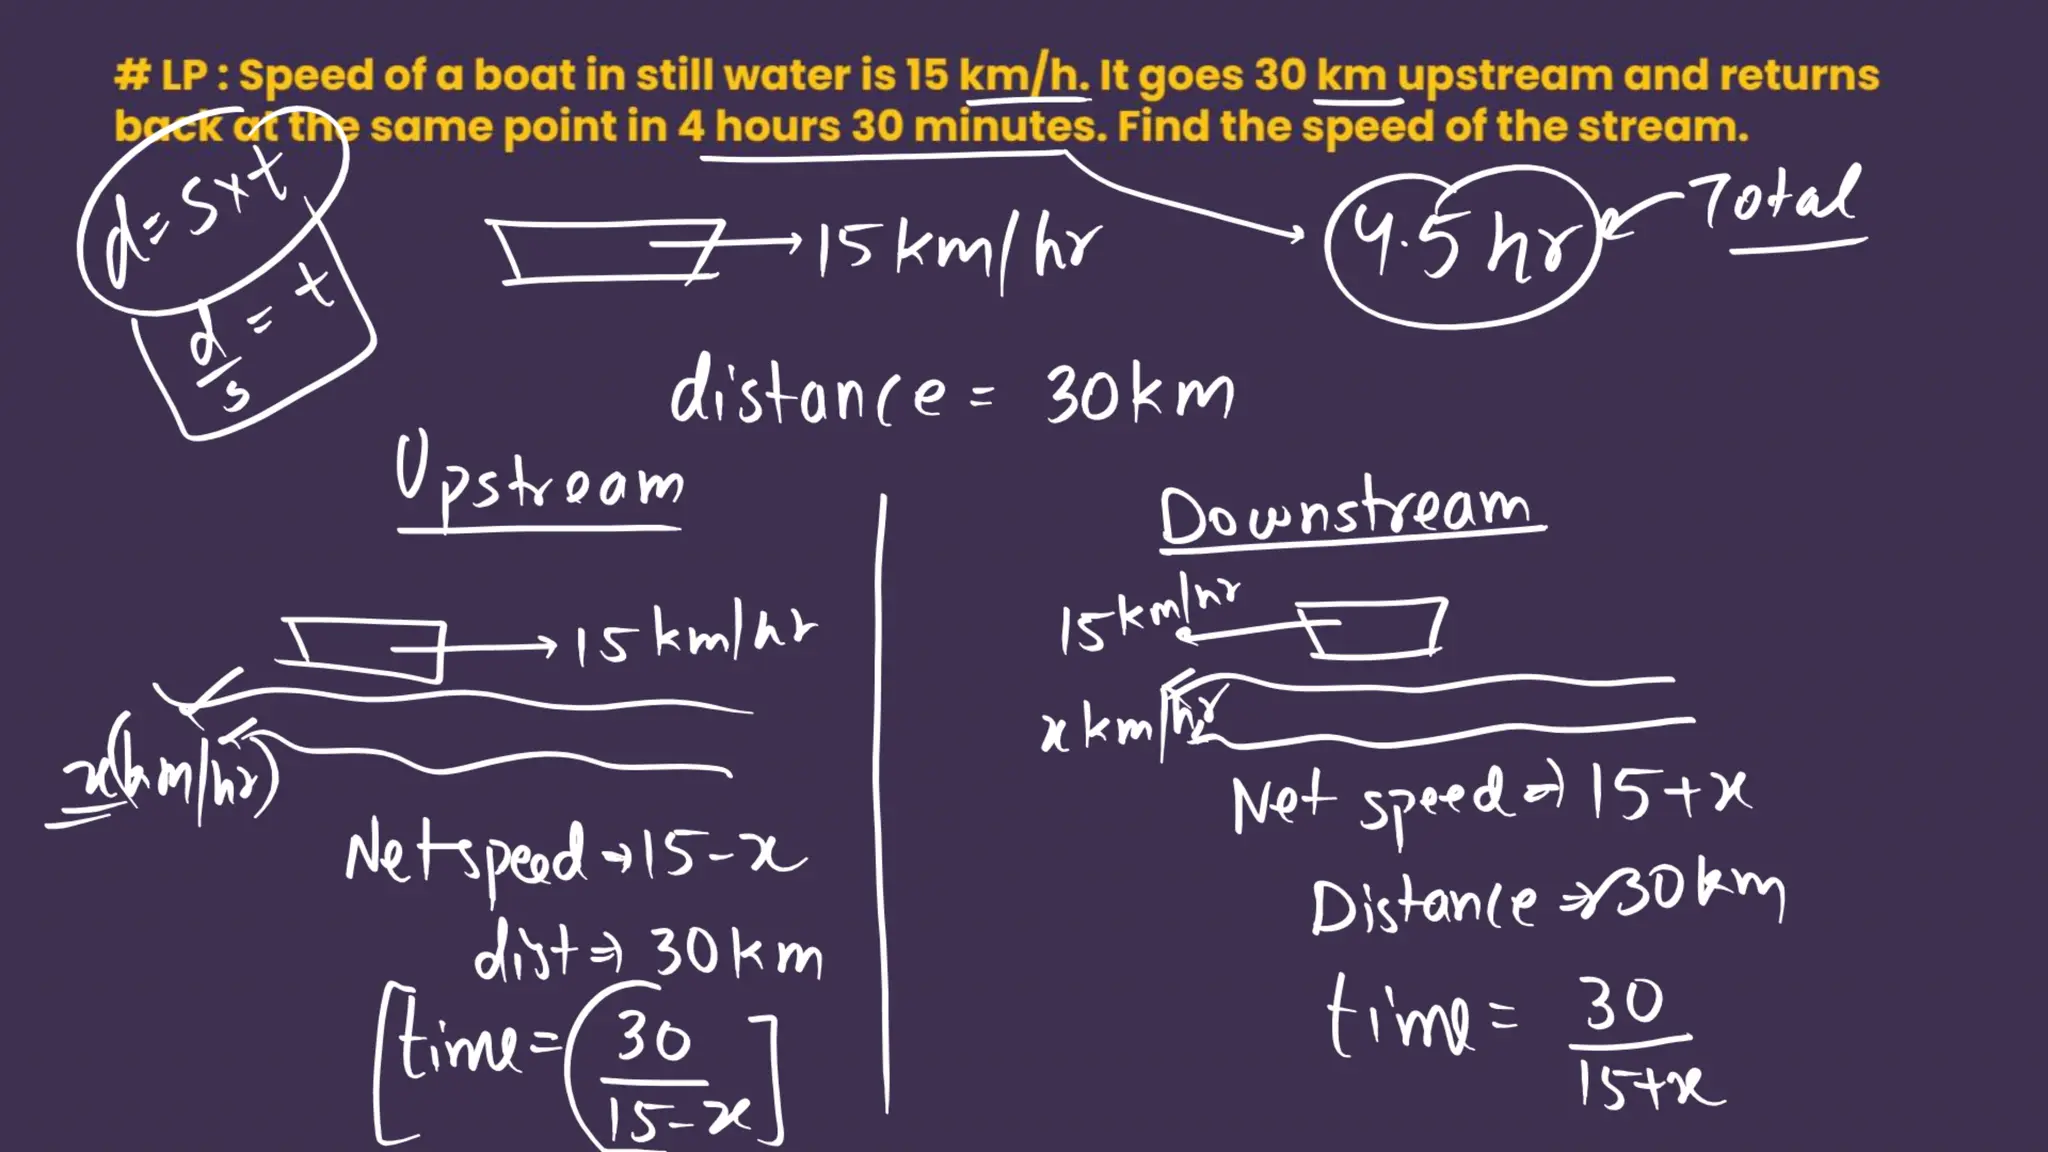 # LP : Speed of a boat in still water is 15 km/h. It goes 30 km upstream and returns
back at the same point in 4 hours 30 minutes. Find the speed of the stream.
d = s x t
d/s = t
15 km/hr
4.5 hr
Total
distance = 30 km
Upstream
15 km/hr
x(km/hr)
Net speed → 15 - x
dist ⇒ 30 km
[time = 30/15-x]
Downstream
15 km/hr
x km/hr
Net speed ⇒ 15 + x
Distance ⇒ 30 km
time = 30/15+x